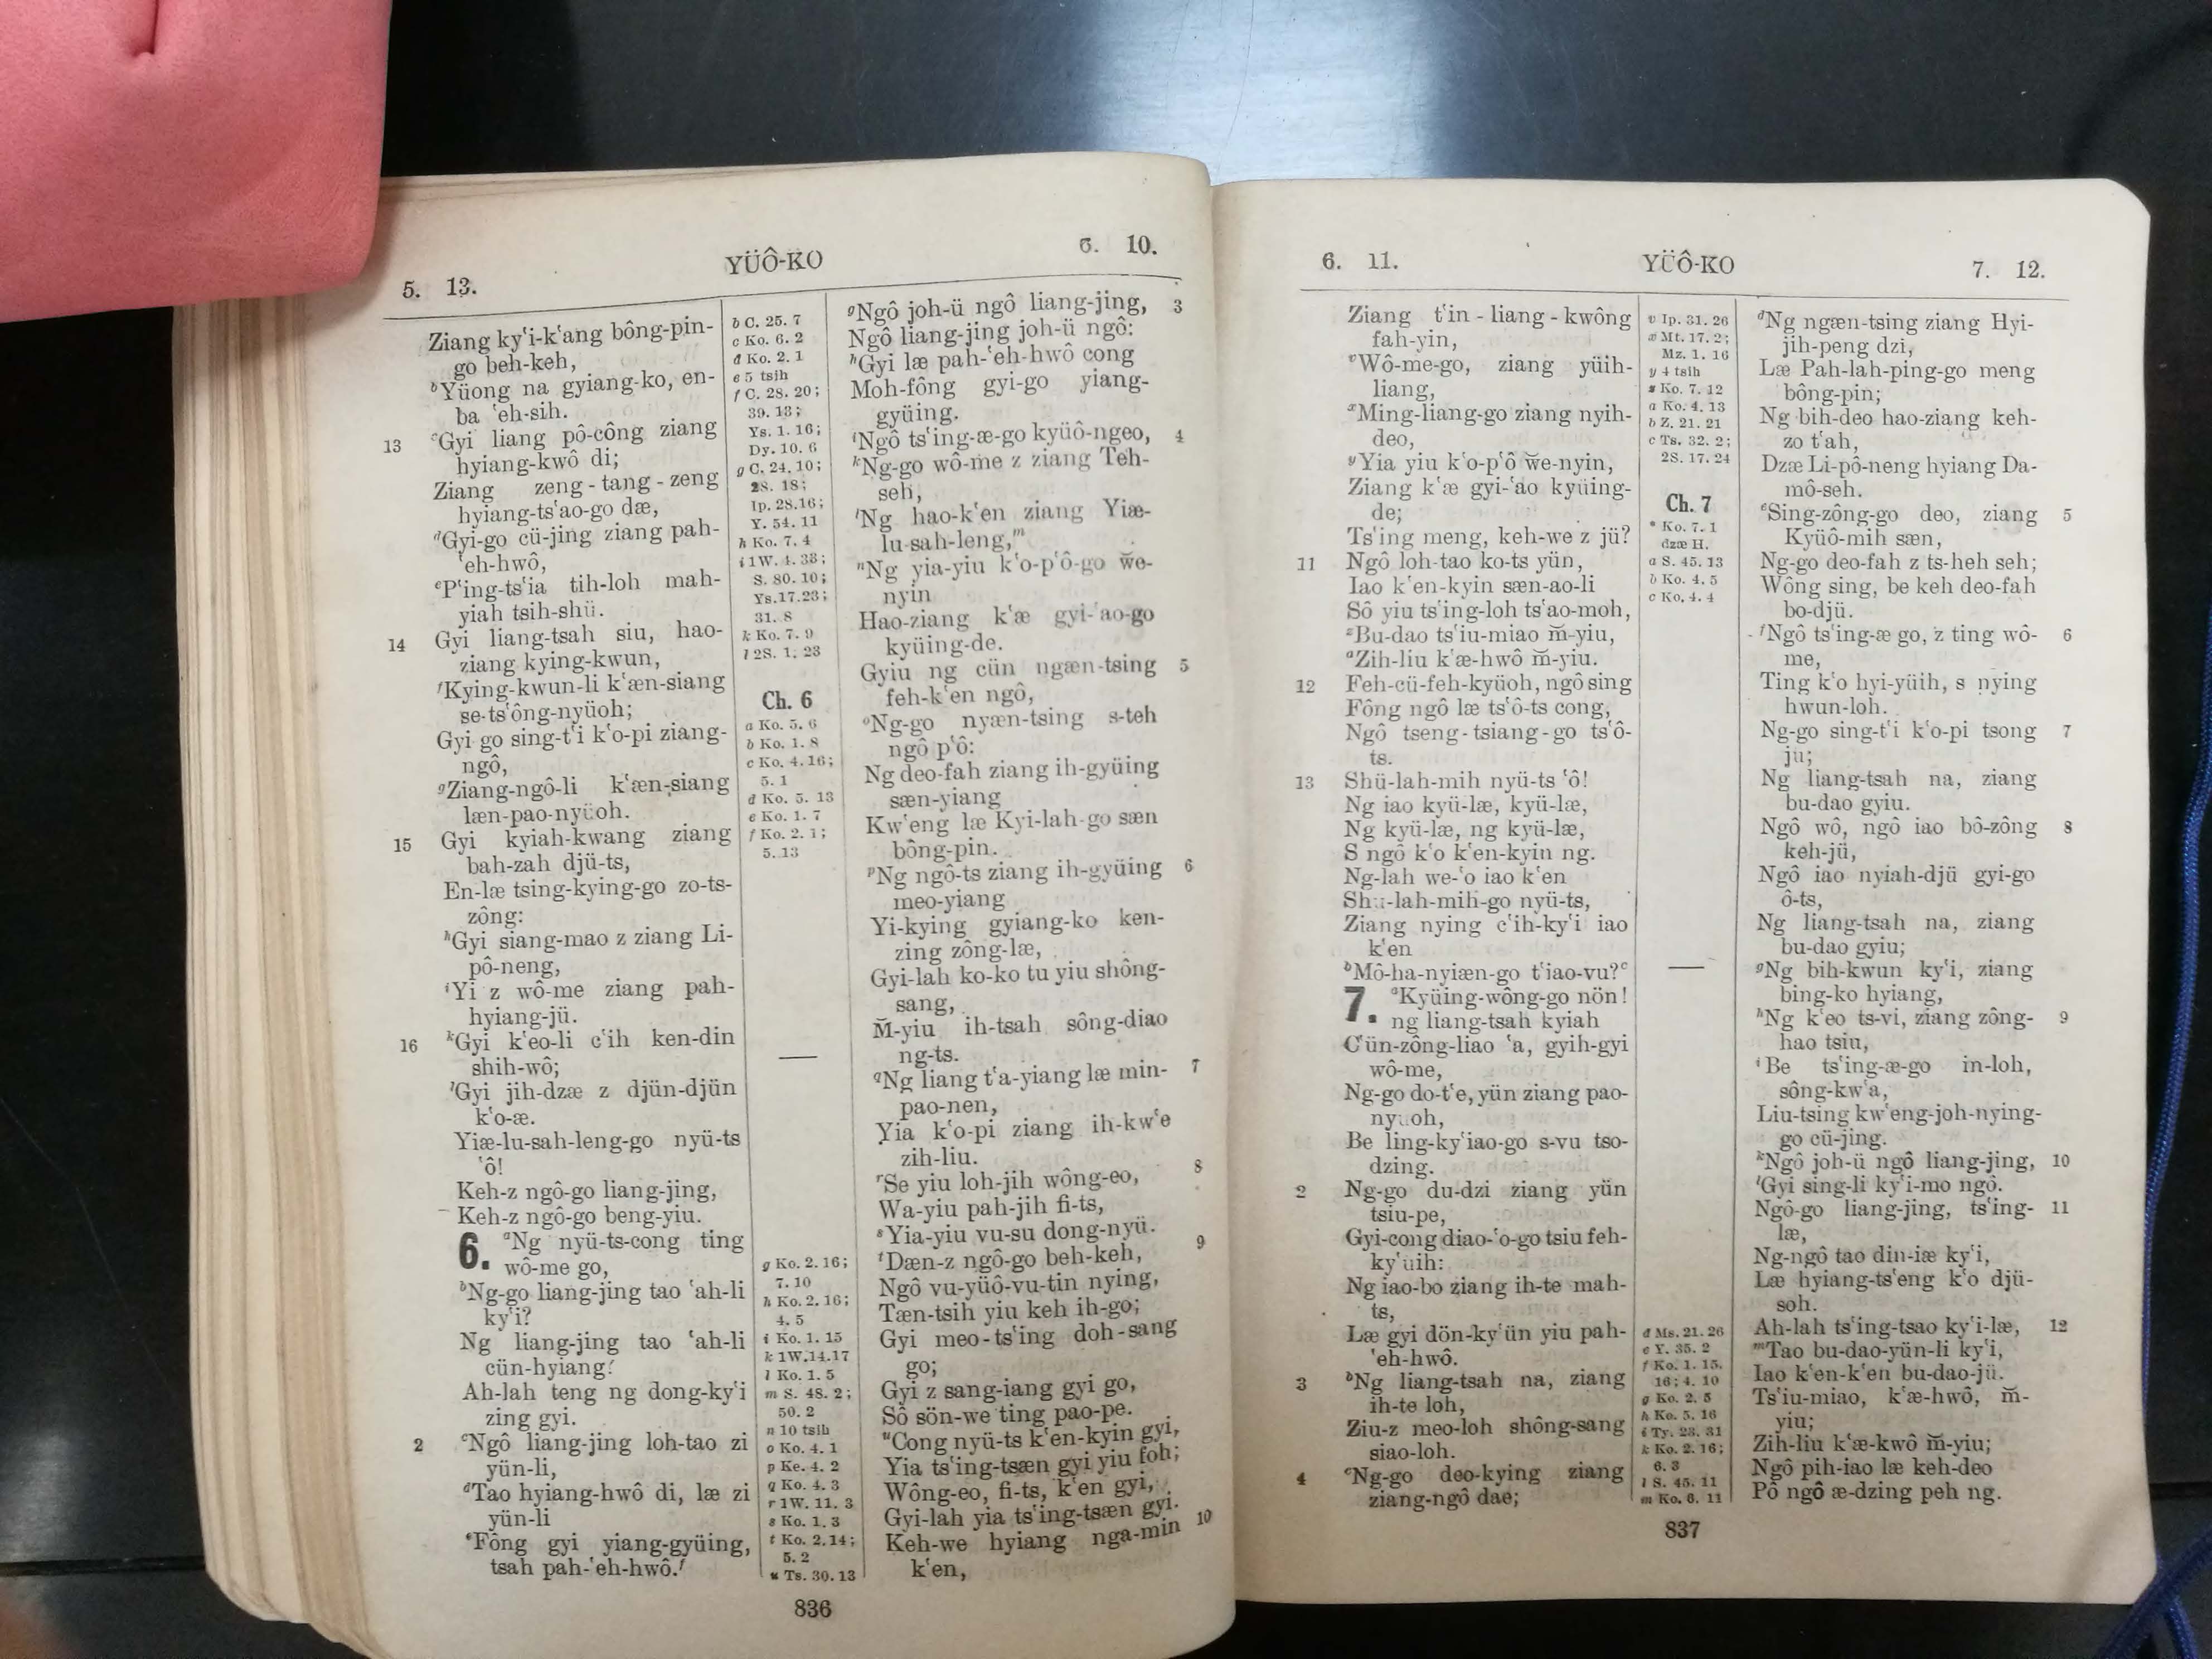 5. 13.
YÜÔ-KO
6. 10.
Ziang ky‘i-k‘ang bông-pin-
go beh-keh,
ᵇYüong na gyiang-ko, en-
ba ‘eh-sih.
13 ᶜGyi liang pô-công ziang
hyiang-kwô di;
Ziang zeng-tang-zeng
hyiang-ts‘ao-go dæ,
ᵈGyi-go cü-jing ziang pah-
‘eh-hwô,
ᵉP‘ing-ts‘ia tih-loh mah-
yiah tsih-shü.
14 Gyi liang-tsah siu, hao-
ziang kying-kwun,
ᶠKying-kwun-li k‘æn-siang
se-ts‘ông-nyüoh;
Gyi go sing-t‘i k‘o-pi ziang-
ngô,
ᵍZiang-ngô-li k‘æn-siang
læn-pao-nyüoh.
15 Gyi kyiah-kwang ziang
bah-zah djü-ts,
En-læ tsing-kying-go zo-ts-
zông:
ʰGyi siang-mao z ziang Li-
pô-neng,
ⁱYi z wô-me ziang pah-
hyiang-jü.
16 ᵏGyi k‘eo-li c‘ih ken-din
shih-wô;
ˡGyi jih-dzæ z djün-djün
k‘o-æ.
Yiæ-lu-sah-leng-go nyü-ts
‘ô!
Keh-z ngô-go liang-jing,
Keh-z ngô-go beng-yiu.
6. ᵃNg nyü-ts-cong ting
wô-me go,
ᵇNg-go liang-jing tao ‘ah-li
ky‘i?
Ng liang-jing tao ‘ah-li
cün-hyiang?
Ah-lah teng ng dong-ky‘i
zing gyi.
2 ᶜNgô liang-jing loh-tao zi
yün-li,
ᵈTao hyiang-hwô di, læ zi
yün-li
ᵉFông gyi yiang-gyüing,
tsah pah-‘eh-hwô.ᶠ
b C. 25. 7
c Ko. 6. 2
d Ko. 2. 1
e 5 tsih
f C. 28. 20;
39. 13;
Ys. 1. 16;
Dy. 10. 6
g C. 24. 10;
2S. 18;
Ip. 28. 16;
Y. 54. 11
h Ko. 7. 4
i 1W. 4. 33;
S. 80. 10;
Ys. 17. 23;
31. 8
k Ko. 7. 9
l 2S. 1. 23
Ch. 6
a Ko. 5. 6
b Ko. 1. 8
c Ko. 4. 16;
5. 1
d Ko. 5. 13
e Ko. 1. 7
f Ko. 2. 1;
5. 13
g Ko. 2. 16;
7. 10
h Ko. 2. 16;
4. 5
i Ko. 1. 15
k 1W. 14. 17
l Ko. 1. 5
m S. 48. 2;
50. 2
n 10 tsih
o Ko. 4. 1
p Ke. 4. 2
q Ko. 4. 3
r 1W. 11. 3
s Ko. 1. 3
t Ko. 2. 14;
5. 2
u Ts. 30. 13
ᵍNgô joh-ü ngô liang-jing, 3
Ngô liang-jing joh-ü ngô:
ʰGyi læ pah-‘eh-hwô cong
Moh-fông gyi-go yiang-
gyüing.
ⁱNgô ts‘ing-æ-go kyüô-ngeo, 4
ᵏNg-go wô-me z ziang Teh-
seh,
ˡNg hao-k‘en ziang Yiæ-
lu-sah-leng,ᵐ
ⁿNg yia-yiu k‘o-p‘ô-go we-
nyin
Hao-ziang k‘æ gyi-‘ao-go
kyüing-de.
Gyiu ng cün ngæn-tsing 5
feh-k‘en ngô,
ᵒNg-go nyæn-tsing s-teh
ngô p‘ô:
Ng deo-fah ziang ih-gyüing
sæn-yiang
Kw‘eng læ Kyi-lah-go sæn
bông-pin.
ᵖNg ngô-ts ziang ih-gyüing 6
meo-yiang
Yi-kying gyiang-ko ken-
zing zông-læ,
Gyi-lah ko-ko tu yiu shông-
sang,
M̆-yiu ih-tsah sông-diao
ng-ts.
ᑫNg liang t‘a-yiang læ min- 7
pao-nen,
Yia k‘o-pi ziang ih-kw‘e
zih-liu.
ʳSe yiu loh-jih wông-eo, 8
Wa-yiu pah-jih fi-ts,
ˢYia-yiu vu-su dong-nyü.
ᵗDæn-z ngô-go beh-keh, 9
Ngô vu-yüô-vu-tin nying,
Tæn-tsih yiu keh ih-go;
Gyi meo-ts‘ing doh-sang
go;
Gyi z sang-iang gyi go,
Sô sön-we ting pao-pe.
ᵘCong nyü-ts k‘en-kyin gyi,
Yia ts‘ing-tsæn gyi yiu foh;
Wông-eo, fi-ts, k‘en gyi,
Gyi-lah yia ts‘ing-tsæn gyi.
Keh-we hyiang nga-min 10
k‘en,
836
6. 11.
YÜÔ-KO
7. 12.
Ziang t‘in-liang-kwông
fah-yin,
ᵛWô-me-go, ziang yüih-
liang,
ˣMing-liang-go ziang nyih-
deo,
ʸYia yiu k‘o-p‘ô w̆e-nyin,
Ziang k‘æ gyi-‘ao kyüing-
de;
Ts‘ing meng, keh-we z jü?
11 Ngô loh-tao ko-ts yün,
Iao k‘en-kyin sæn-ao-li
Sô yiu ts‘ing-loh ts‘ao-moh,
ᶻBu-dao ts‘iu-miao m̆-yiu,
ᵃZih-liu k‘æ-hwô m̆-yiu.
12 Feh-cü-feh-kyüoh, ngô sing
Fông ngô læ ts‘ô-ts cong,
Ngô tseng-tsiang-go ts‘ô-
ts.
13 Shü-lah-mih nyü-ts ‘ô!
Ng iao kyü-læ, kyü-læ,
Ng kyü-læ, ng kyü-læ,
S ngô k‘o k‘en-kyin ng.
Ng-lah we-‘o iao k‘en
Shü-lah-mih-go nyü-ts,
Ziang nying c‘ih-ky‘i iao
k‘en
ᵇMô-ha-nyiæn-go t‘iao-vu?ᶜ
7. ᵃKyüing-wông-go nön!
ng liang-tsah kyiah
C‘ün-zông-liao ‘a, gyih-gyi
wô-me,
Ng-go do-t‘e, yün ziang pao-
nyüoh,
Be ling-ky‘iao-go s-vu tso-
dzing.
2 Ng-go du-dzi ziang yün
tsiu-pe,
Gyi-cong diao-‘o-go tsiu feh-
ky‘üih:
Ng iao-bo ziang ih-te mah-
ts,
Læ gyi dön-ky‘ün yiu pah-
‘eh-hwô.
3 ᵇNg liang-tsah na, ziang
ih-te loh,
Ziu-z meo-loh shông-sang
siao-loh.
4 ᶜNg-go deo-kying ziang
ziang-ngô dae;
v Ip. 31. 26
x Mt. 17. 2;
Mz. 1. 16
y 4 tsih
z Ko. 7. 12
a Ko. 4. 13
b Z. 21. 21
c Ts. 32. 2;
2S. 17. 24
Ch. 7
* Ko. 7. 1
dzæ H.
a S. 45. 13
b Ko. 4. 5
c Ko. 4. 4
d Ms. 21. 26
e Y. 35. 2
f Ko. 1. 15,
16; 4. 10
g Ko. 2. 5
h Ko. 5. 16
i Ty. 23. 31
k Ko. 2. 16;
6. 3
l S. 45. 11
m Ko. 6. 11
ᵈNg ngæn-tsing ziang Hyi-
jih-peng dzi,
Læ Pah-lah-ping-go meng
bông-pin;
Ng bih-deo hao-ziang keh-
zo t‘ah,
Dzæ Li-pô-neng hyiang Da-
mô-seh.
ᵉSing-zông-go deo, ziang 5
Kyüô-mih sæn,
Ng-go deo-fah z ts-heh seh;
Wông sing, be keh deo-fah
bo-djü.
ᶠNgô ts‘ing-æ go, z ting wô- 6
me,
Ting k‘o hyi-yüih, s nying
hwun-loh.
Ng-go sing-t‘i k‘o-pi tsong 7
jü;
Ng liang-tsah na, ziang
bu-dao gyiu.
Ngô wô, ngô iao bô-zông 8
keh-jü,
Ngô iao nyiah-djü gyi-go
ô-ts,
Ng liang-tsah na, ziang
bu-dao gyiu;
ᵍNg bih-kwun ky‘i, ziang
bing-ko hyiang,
ʰNg k‘eo ts-vi, ziang zông- 9
hao tsiu,
ⁱBe ts‘ing-æ-go in-loh,
sông-kw‘a,
Liu-tsing kw‘eng-joh-nying-
go cü-jing.
ᵏNgô joh-ü ngô liang-jing, 10
ˡGyi sing-li ky‘i-mo ngô.
Ngô-go liang-jing, ts‘ing- 11
læ,
Ng-ngô tao din-iæ ky‘i,
Læ hyiang-ts‘eng k‘o djü-
soh.
Ah-lah ts‘ing-tsao ky‘i-læ, 12
ᵐTao bu-dao-yün-li ky‘i,
Iao k‘en-k‘en bu-dao-jü.
Ts‘iu-miao, k‘æ-hwô, m̆-
yiu;
Zih-liu k‘æ-kwô m̆-yiu;
Ngô pih-iao læ keh-deo
Pô ngô æ-dzing peh ng.
837